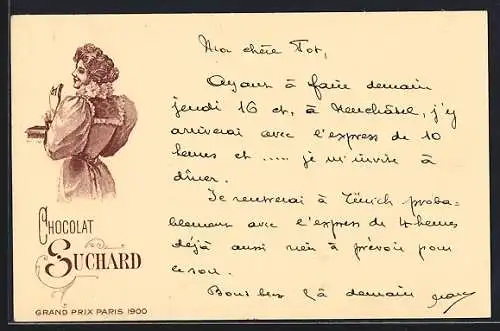 Ma chère Tot,
Ayant à faire demain
jeudi 16 ct, à Neuchâtel, j'y
arriverai avec l'express de 10
heures et ..... je m'invite à
dîner.
Je rentrerai à Zürich proba-
blement avec l'express de 4 heures
déjà aussi rien à prévoir pour
ce soir.
à demain
CHOCOLAT
SUCHARD
GRAND PRIX PARIS 1900